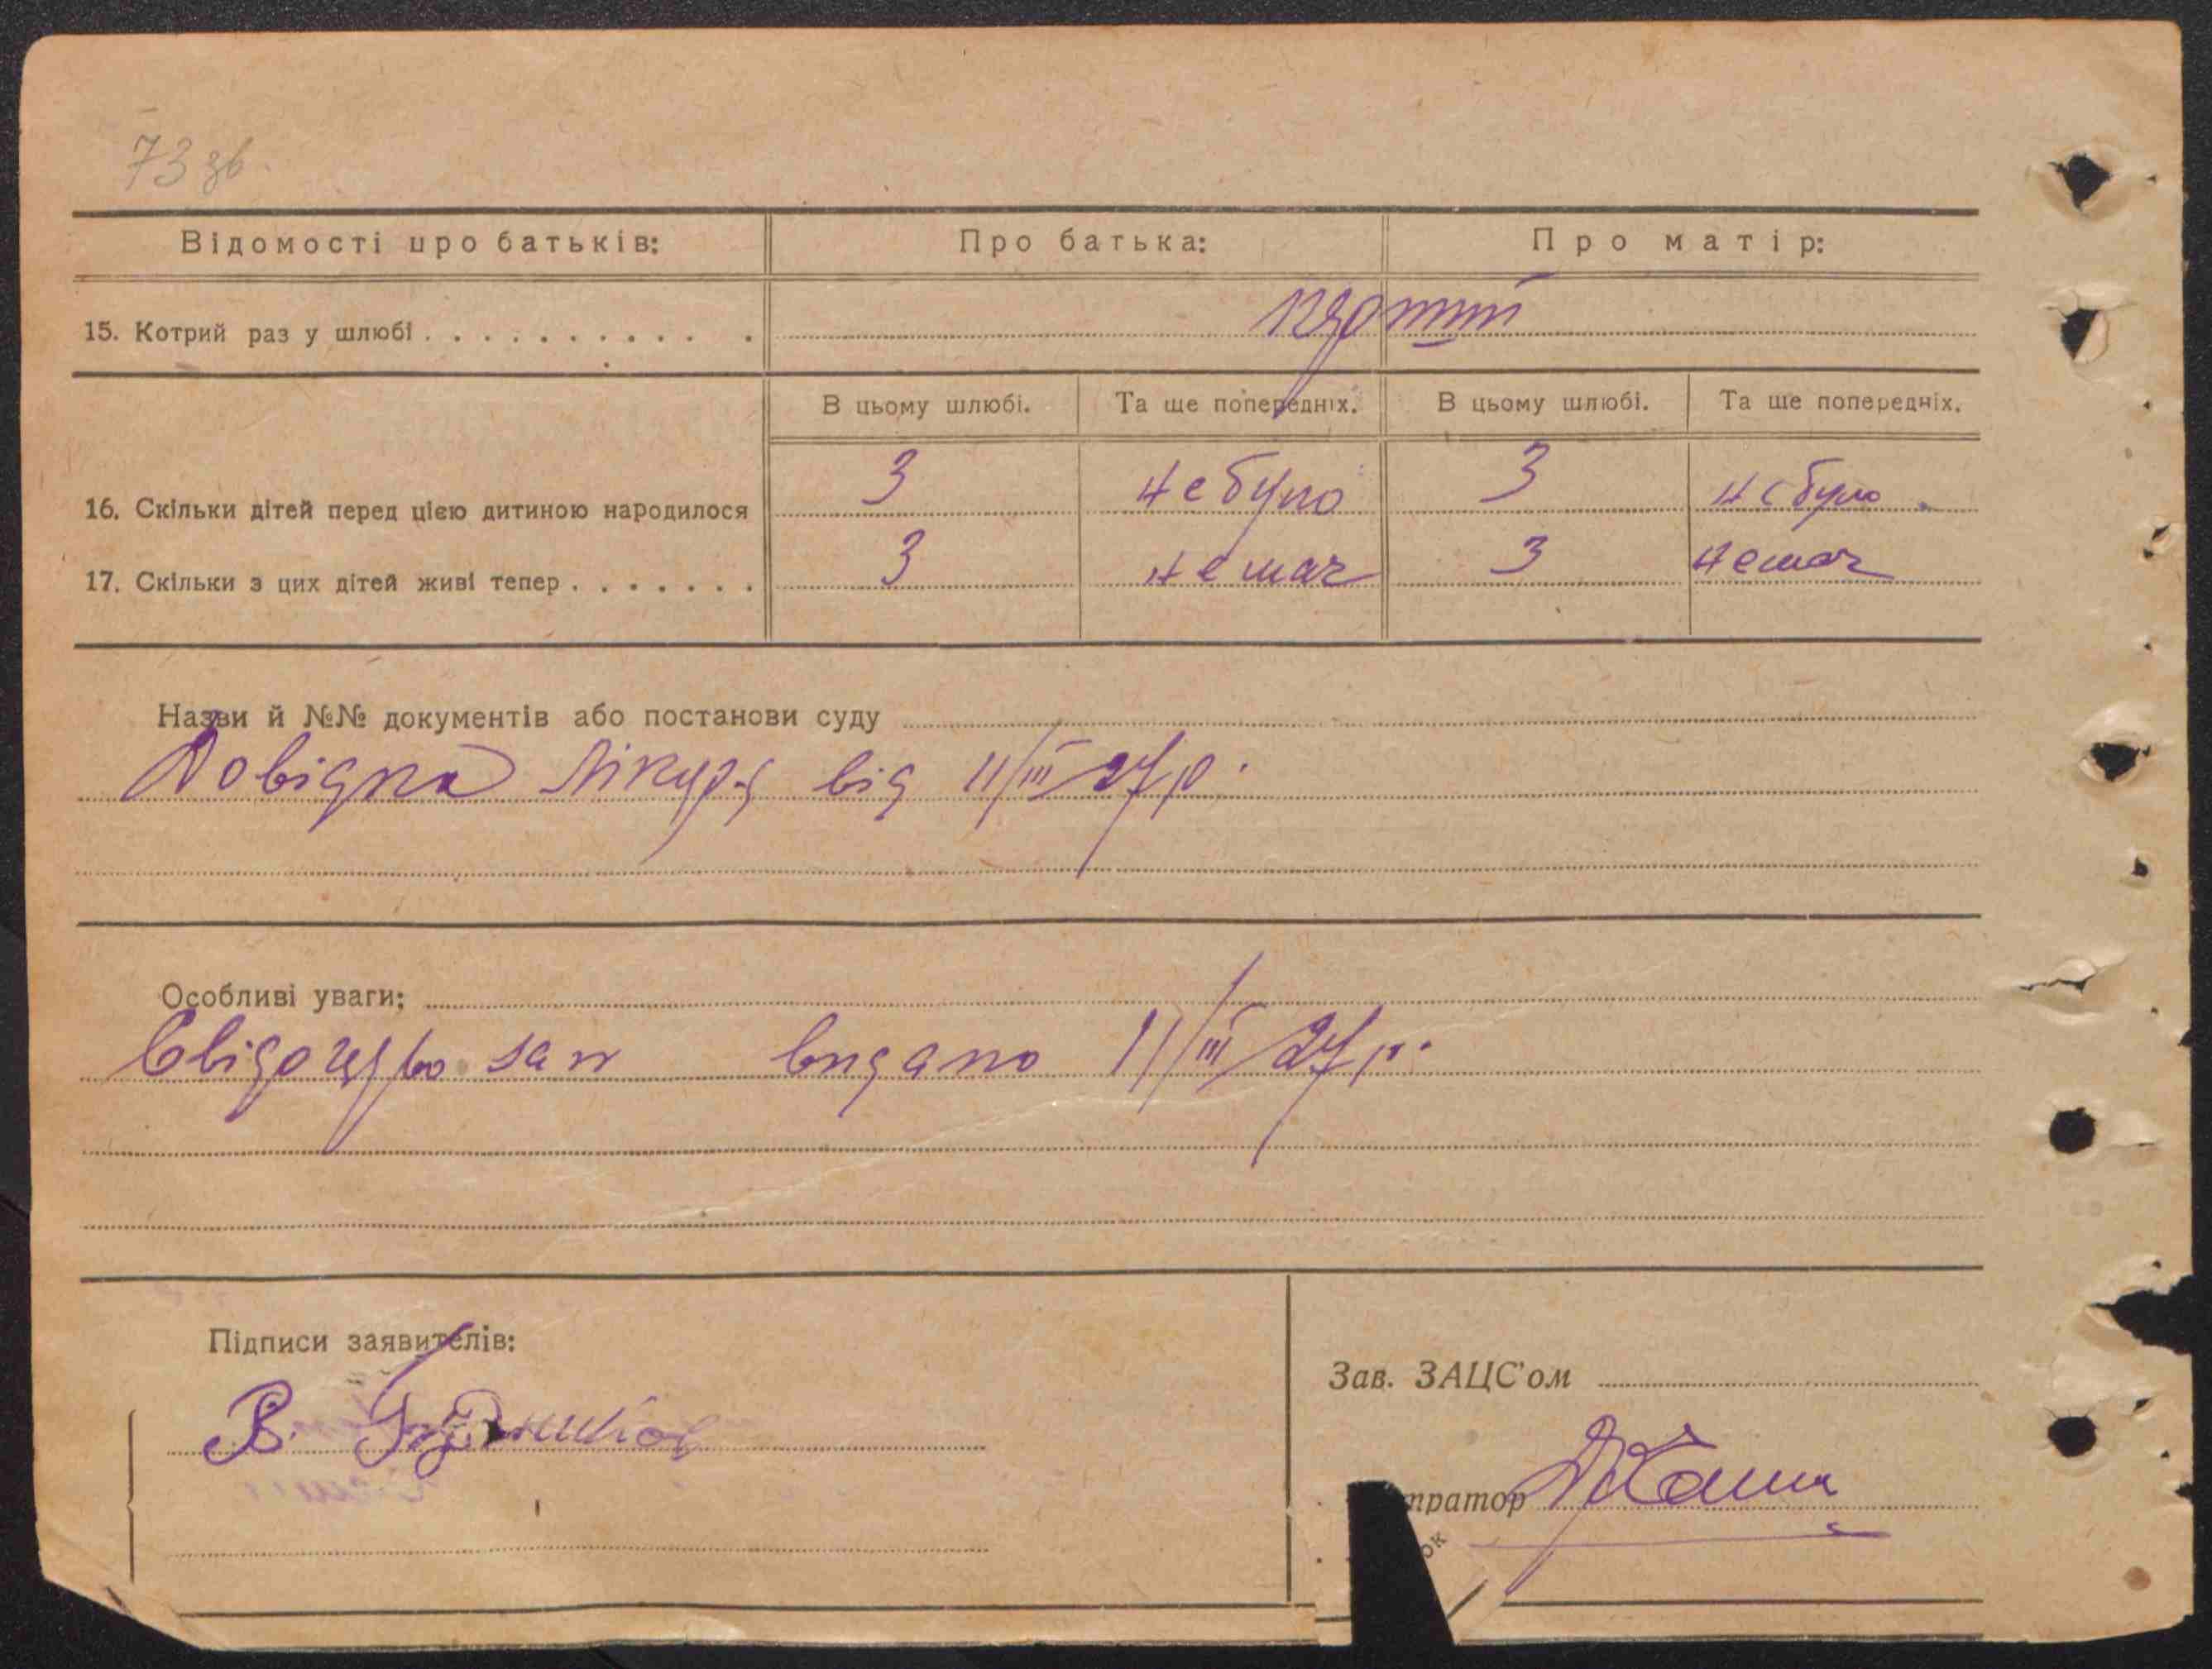 73 зв.
Відомості про батьків: Про батька: Про матір:
15. Котрий раз у шлюбі . . . . . . . . . . . перший
В цьому шлюбі. Та ще попередніх. В цьому шлюбі. Та ще попередніх.
16. Скільки дітей перед цією дитиною народилося 3 не було 3 не було
17. Скільки з цих дітей живі тепер . . . . . . . 3 немає 3 немає
Назви й №№ документів або постанови суду
Довідка лікаря від 11/III 27 р.
Особливі уваги:
Свідоцтво за № видано 11/III 27 р.
Підписи заявителів:
В.
Зав. ЗАЦС'ом
тратор
ок